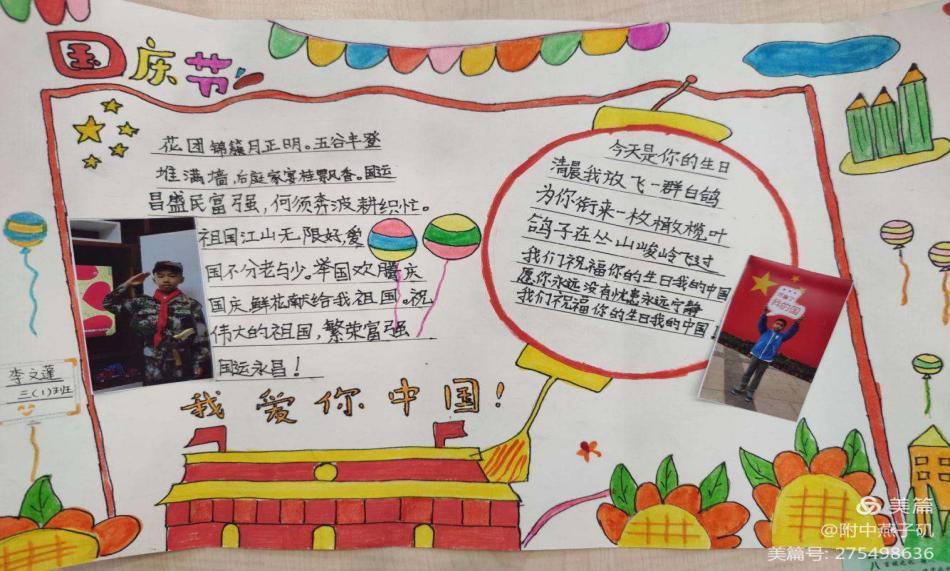 国庆节
花团锦簇月正明。五谷丰登
堆满墙,后庭家宴桂飘香。国运
昌盛民富强,何须奔波耕织忙。
祖国江山无限好,爱
国不分老与少。举国欢腾庆
国庆,鲜花献给我祖国。祝
伟大的祖国,繁荣富强
国运永昌!
我爱你中国!
今天是你的生日
清晨我放飞一群白鸽
为你衔来一枚橄榄叶
鸽子在丛山峻岭飞过
我们祝福你的生日我的中国
愿你永远没有忧患永远宁静
我们祝福你的生日我的中国!
李文莲
三(1)班
我的国
美篇
@附中燕子矶
美篇号: 275498636